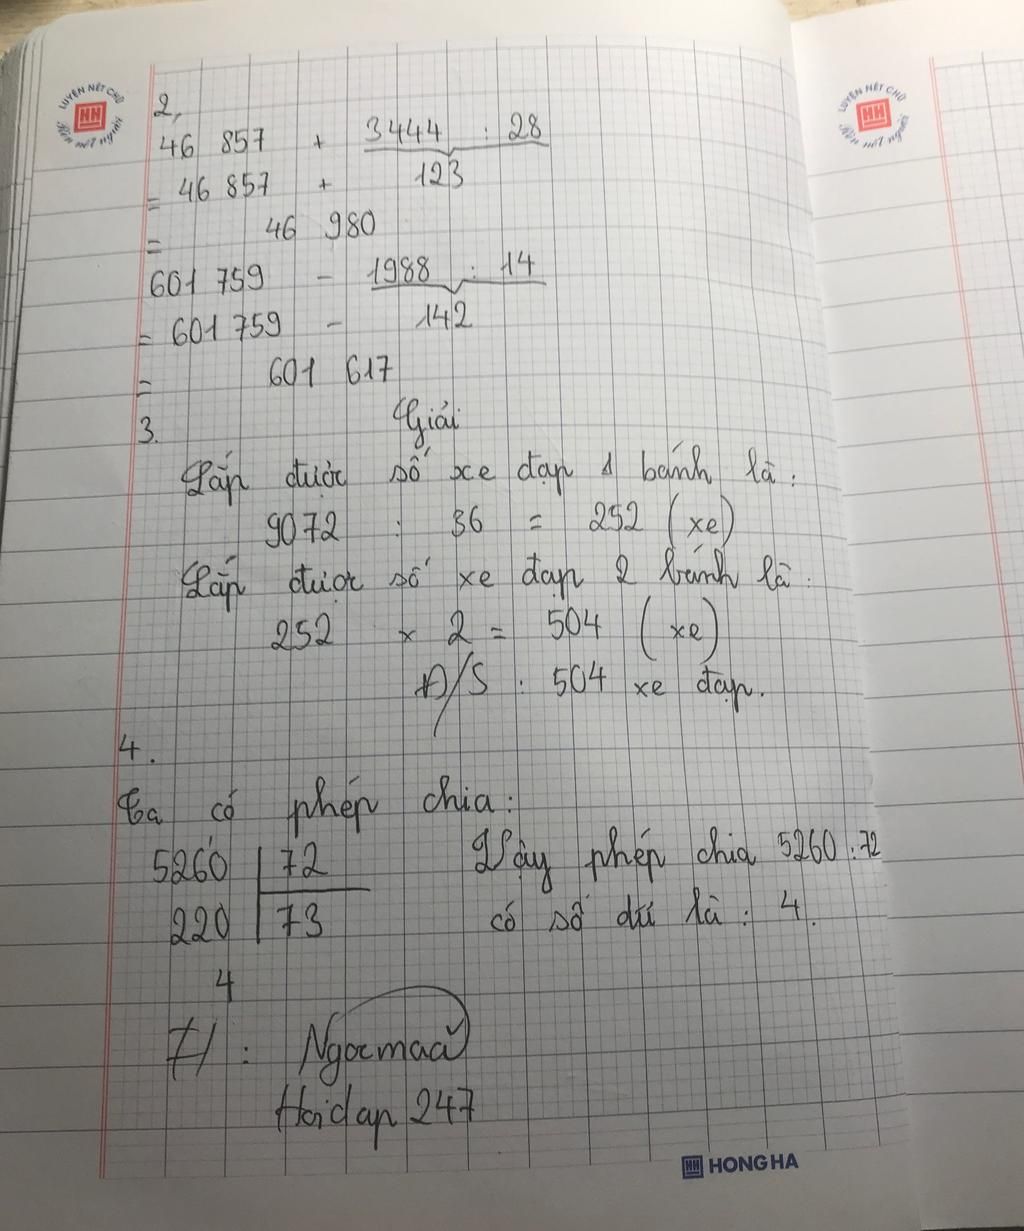 LUYỆN NÉT CHỮ
Rèn nết người
LUYỆN NÉT CHỮ
Rèn nết người
2,
46 857 + 3444 : 28
= 46 857 + 123
= 46 980
601 759 - 1988 : 14
= 601 759 - 142
= 601 617
3. Giải
Lắp được số xe đạp 1 bánh là :
9072 : 36 = 252 (xe)
Lắp được số xe đạp 2 bánh là :
252 x 2 = 504 (xe)
Đ/S : 504 xe đạp.
4.
Ta có phép chia :
5260 | 72 Vậy phép chia 5260 : 72
220 | 73 có số dư là : 4.
4
Ngocmaa
Hoidap 247
HONG HA